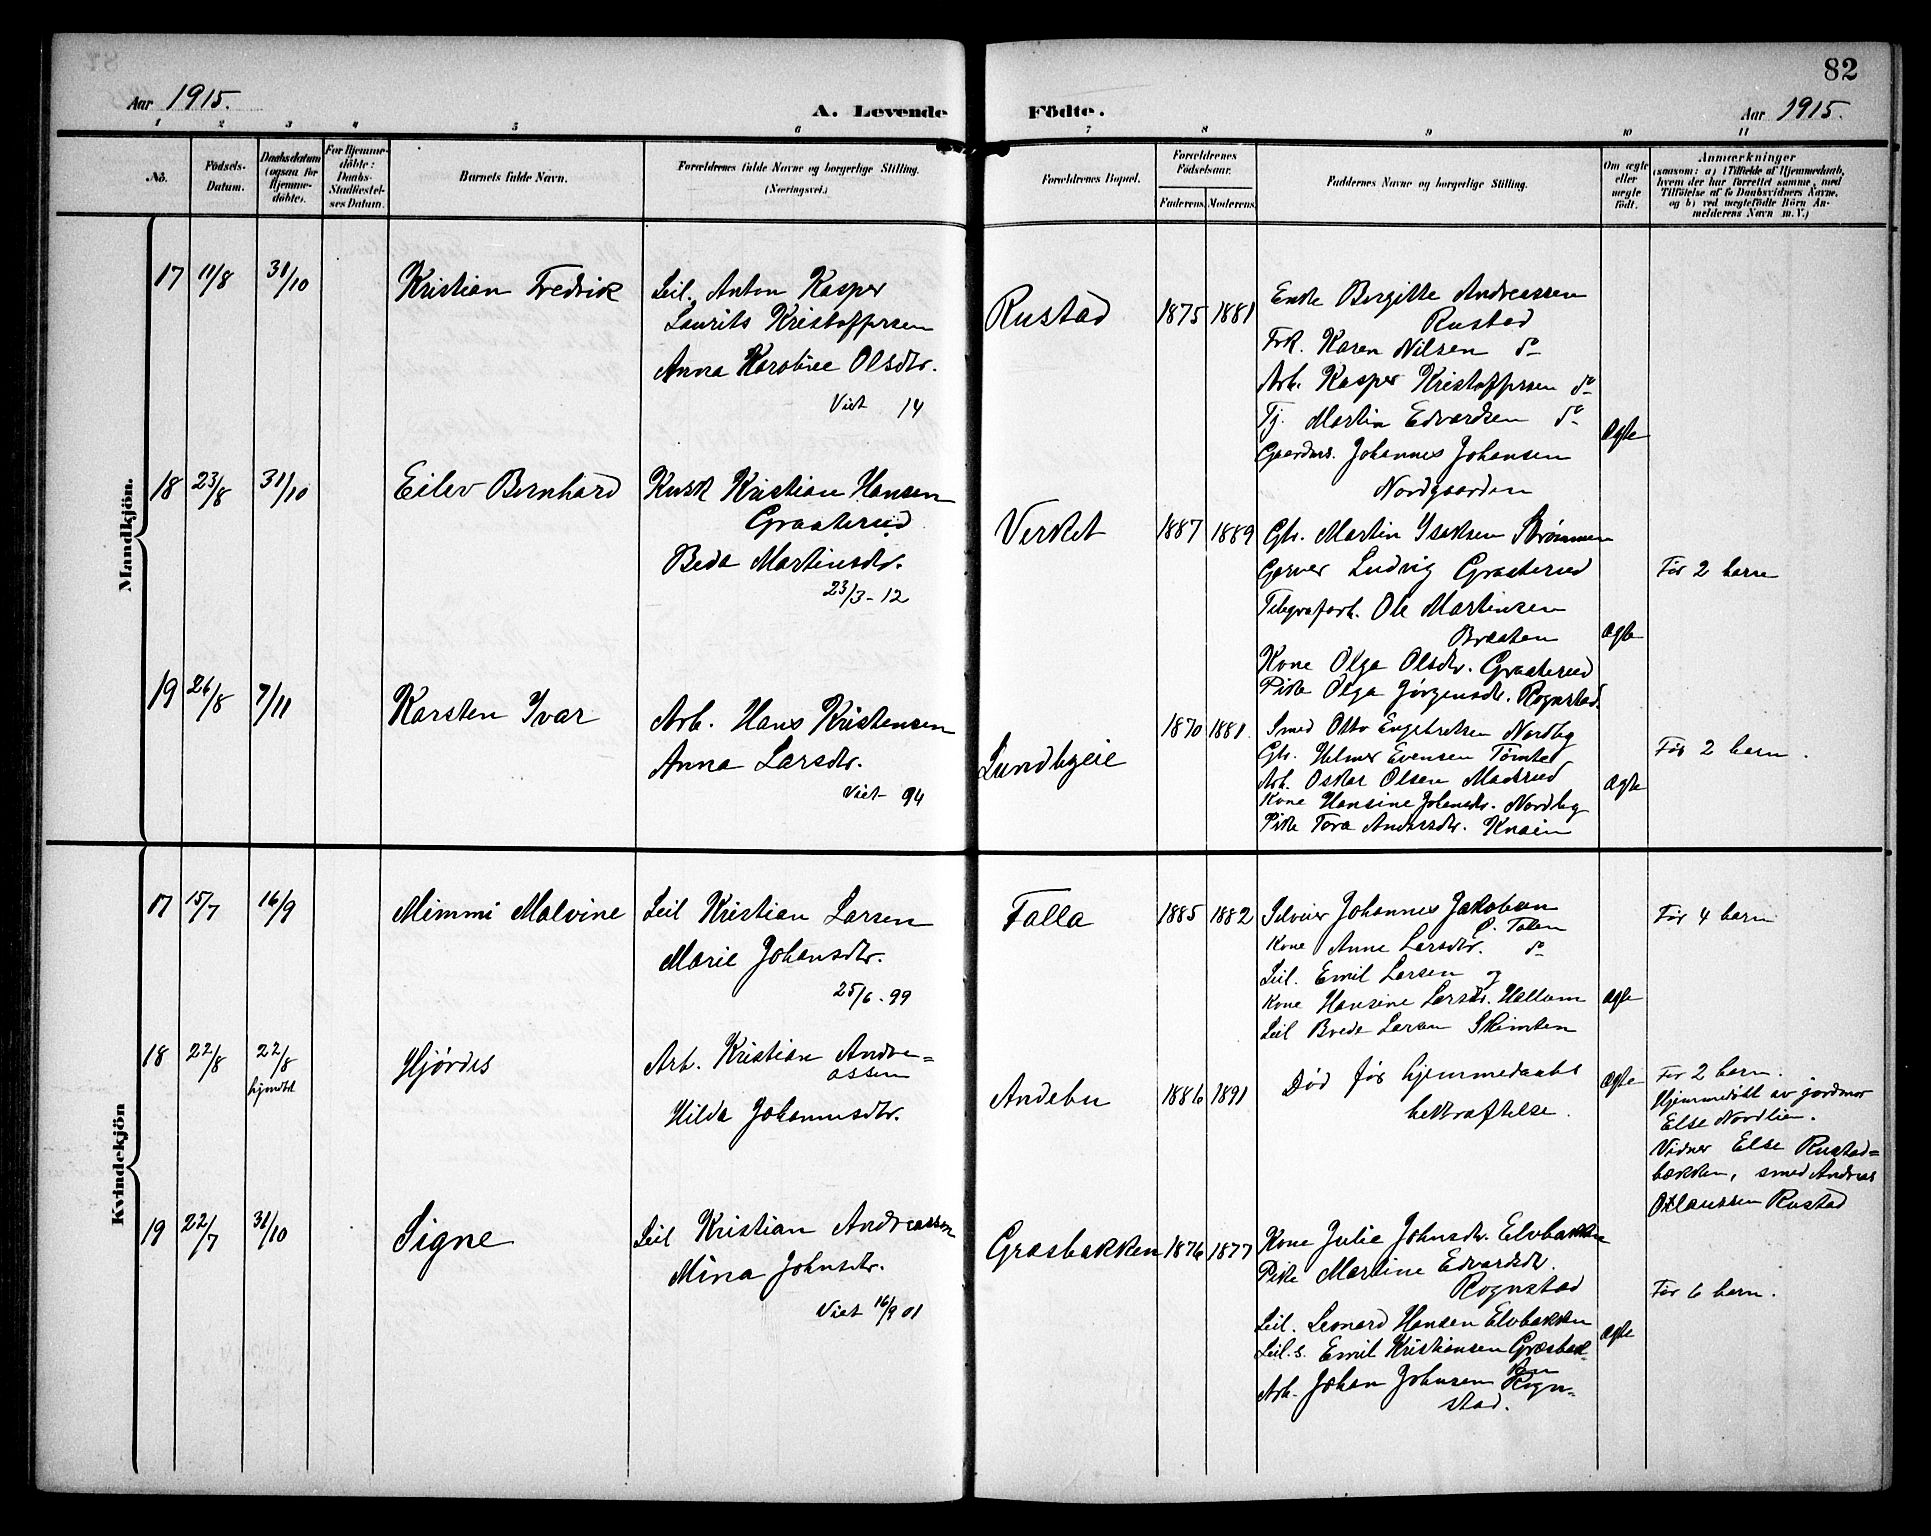 82
Aar 1915.
A. Levende Födte.
Aar 1915.
1 2 3 4 5 6 7 8 9 10 11
No.
Födsels-Datum.
Daabsdatum (ogsaa for Hjemme-döbte).
For Hjemme-döbte: Daabs-Stadfæstel-ses Datum.
Barnets fulde Navn.
Forældrenes fulde Navne og borgerlige Stilling.
(Næringsvei.)
Forældrenes Bopæl.
Forældrenes Födselsaar.
Faderens. Moderens.
Faddernes Navne og borgerlige Stilling.
Om ægte eller uægte födt.
Anmærkninger
(saasom: a) i Tilfælde af Hjemmedaab, hvem der har forrettet samme, med Tilföielse af to Daabsvidners Navne, og b) ved uægtefödte Börn An-melderens Navn m. V.)
Mandkjön.
17 11/8 31/10 Kristian Fredrik
Leil. Anton Kasper
Laurits Kristoffersen
Anna Karoline Olsdtr.
Viet 14
Rustad 1875 1881
Enke Birgitte Andreassen
Rustad
Frk. Karen Nilsen do
Arb. Kasper Kristoffersen do
Tj. Martin Edvardsen do
Gaardbr. Johannes Johansen
Nordgaarden
Ægte
18 23/8 31/10 Eilev Bernhard
Kusk Kristian Hansen
Graaterud
Beda Martinsdtr.
23/3-12
Verket 1887 1889
Gbr. Martin Isaksen Strømmen
Garver Ludvig Graaterud
Telegrafarb. Ole Martinsen
Braaten
Kone Olga Olsdtr. Graaterud
Pike Olga Jørgensdtr. Rognstad
Ægte
Før 2 barn
19 26/8 7/11 Karsten Ivar
Arb. Hans Kristensen
Anna Larsdtr.
Viet 94
Lundbyeie 1870 1881.
Smed Otto Engebretsen Nordby
Gbr. Helmer Evensen Tømte
Arb. Oskar Olsen Madsrud
Kone Hansine Johansdtr. Nordby
Pike Tora Andersdtr. Knain
Ægte
Før 2 barn.
Kvindekjön
17 15/7 16/9 Mimmi Malvine
Leil Kristian Larsen
Marie Johansdtr.
25/6-99
Falla 1885 1882
Selveier Johannes Jakobsen
Ö. Falla
Kone Anne Larsdtr. do
Leil. Emil Larsen og
Kone Hansine Larsdtr. Hallum
Leil Brede Larsen Skimten
Ægte
Før 4 barn
18 22/8 22/8 hjmdbt Hjørdis
Arb. Kristian Andre=
assen
Hilda Johannesdtr.
Andebu 1886 1891
Død før hjemmedaabs
bekræftelse.
Ægte
Før 2 barn.
Hjemmedøbt av jordmor
Else Nordlien.
Vidner Else Rustad=
bakken, smed Andreas
Olaussen Rustad
19 22/7 31/10 Signe
Leil Kristian Andreassen
Mina Johnsdtr.
Viet 16/9 01
Græsbakken 1876 1877
Kone Julie Johnsdtr. Elvbakken
Pike Martine Edvardsdtr.
Rognstad
Leil. Leonard Hansen Elvbakken
Leil.s. Emil Kristiansen Græsbak-
ken
Arb. Johan Johnsen Rogn-
stad.
Ægte
Før 6 barn.